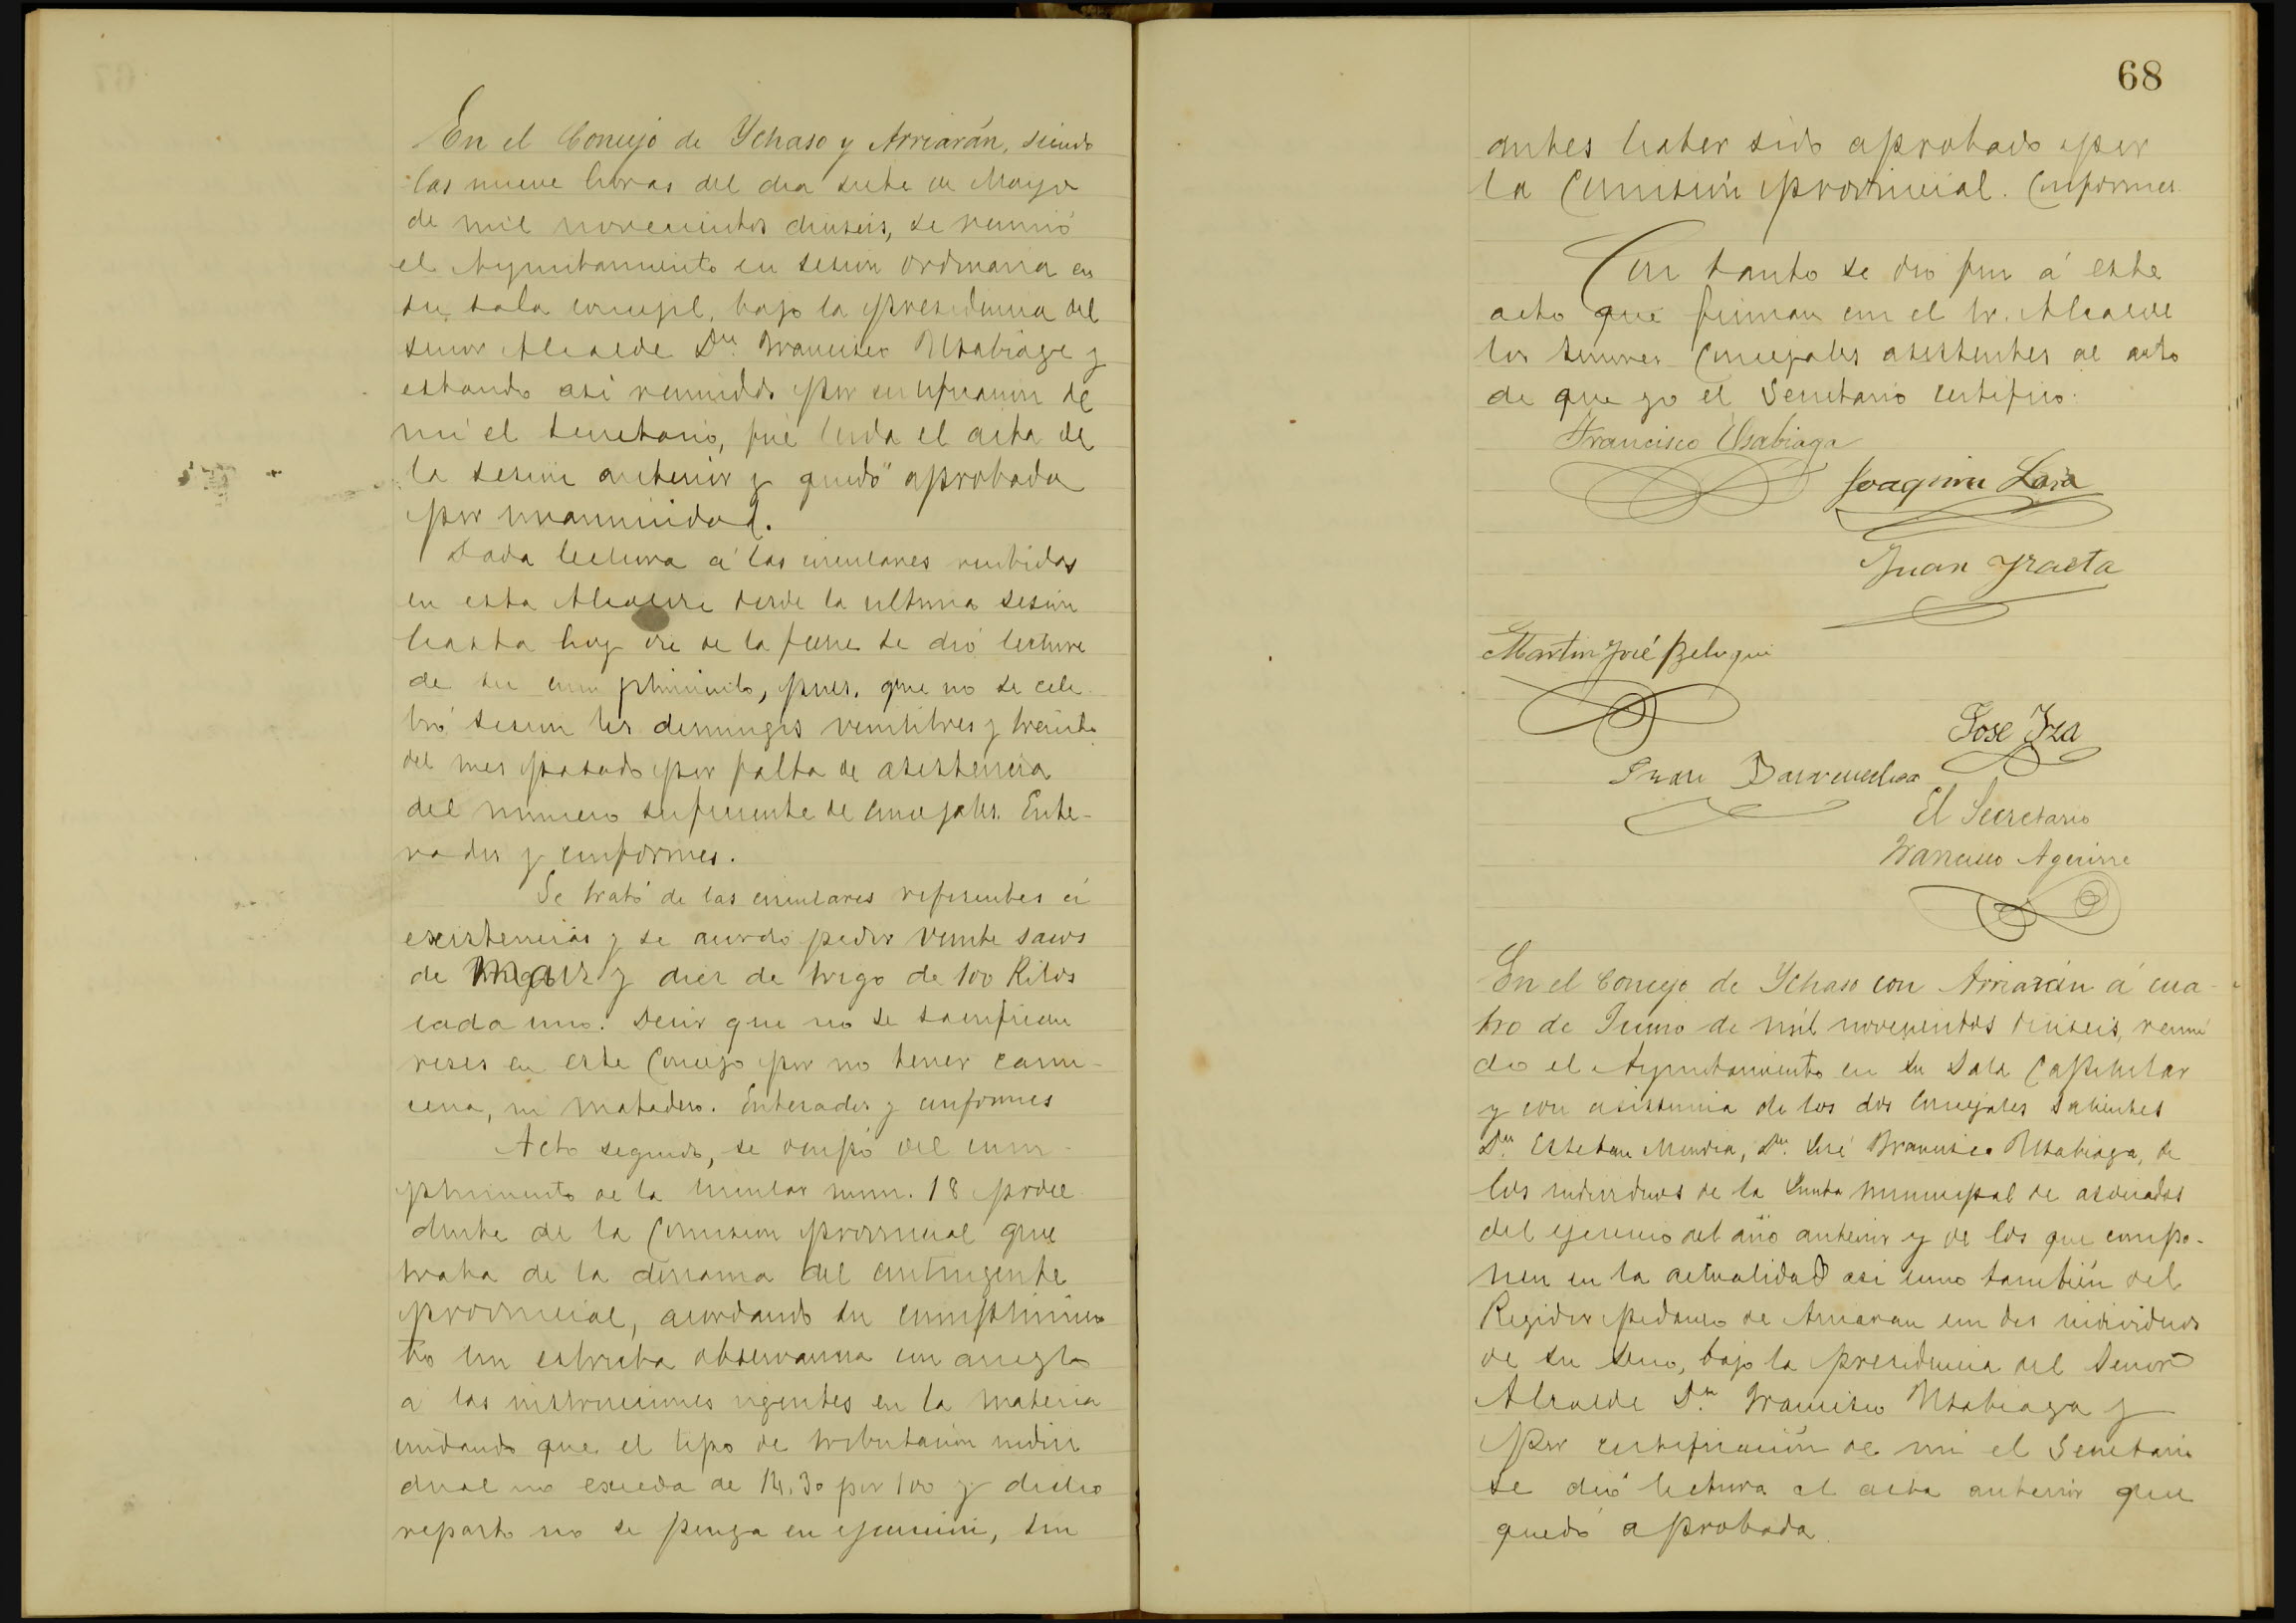 En el Concejo de Ychaso y Arriarán, siendo
las nueve horas del dia siete de Mayo
de mil novecientos dieiseis, se reunió
el Ayuntamiento en sesion ordinaria en
su sala concejil, bajo la presidencia del
señor Alcalde Dn. Francisco Usabiaga y
estando asi reunidos por certificacion de
mi el Secretario, fué leida el acta de
la sesion anterior y quedó aprobada
por unanimidad.
Dada lectura á las circulares recibidas
en esta Alcaldia desde la ultima sesion
hasta hoy dia de la fecha se dió lectura
de su cumplimiento, pues, que no se cele-
bró sesion los domingos veintitres y treinta
del mes pasado por falta de asistencia
del numero suficiente de concejales. Ente-
rados y conformes.
Se trató de las circulares referentes á
existencias y se acordó pedir veinte sacos
de maiz y diez de trigo de 100 Kilos
cada uno. Decir que no se sacrifican
reses en este Concejo por no tener carni-
ceria, ni matadero. Enterados y conformes
Acto seguido, se ocupó del cum-
plimiento de la circular num. 18 proce
dente de la Comision provincial que
trata de la derrama del contingente
provincial, acordando su cumplimien
to con estricta observancia con arreglo
a las instrucciones vigentes en la materia
cuidando que el tipo de tributación indivi
dual no exceda de 14,30 por 100 y dicho
reparto no se ponga en ejecución, sin
68
antes haber sido aprobado por
la Comisión provincial. Conformes
Con tanto se dió fin á este
acto que firman con el Sr. Alcalde
los señores Concejales asistentes al acto
de que yo el Secretario certifico.
Francisco Usabiaga
Joaquin Lasa
Juan Yraeta
Martin José Beloqui
Jose Yza
Juan Barrenechea
El Secretario
Francisco Aguirre
En el Concejo de Ychaso con Arriarán á cua-
tro de Junio de mil novecientos dieiseis, reuni
do el Ayuntamiento en su Sala Capitular
y con asistencia de los dos Concejales salientes
Dn. Esteban Mendia, Dn. José Francisco Usabiaga, de
los individuos de la Junta municipal de asociados
del ejercicio del año anterior y de los que compo-
nen en la actualidad asi como también del
Regidor pedaneo de Arriaran con dos individuos
de su seno, bajo la presidencia del Señor
Alcalde Dn. Francisco Usabiaga y
por certificación de mi el Secretario
se dió lectura al acta anterior que
quedó aprobada.